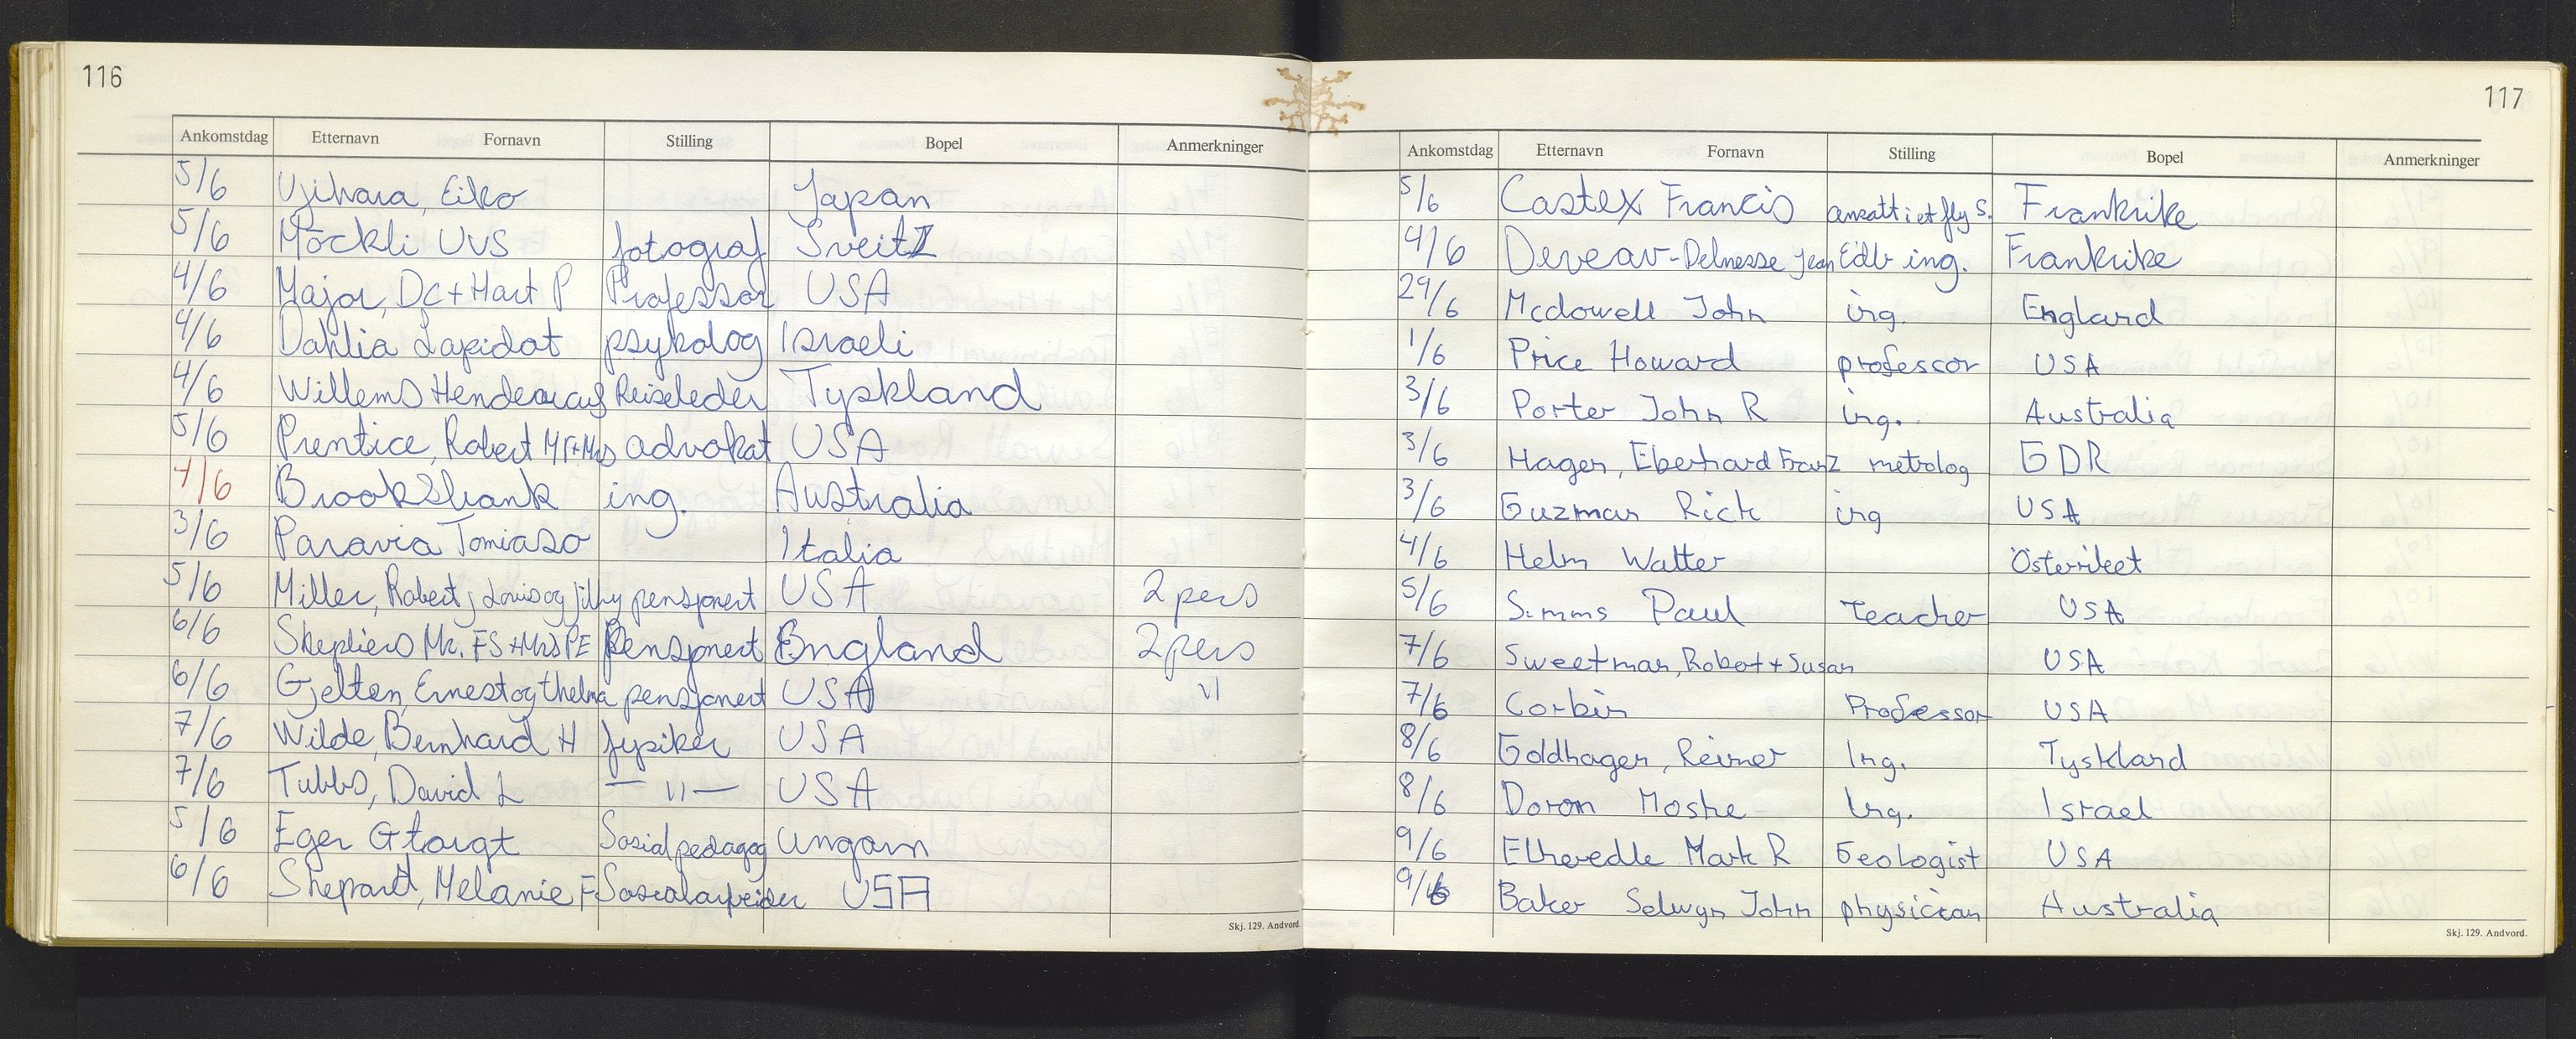 116
Ankomstdag Etternavn Fornavn Stilling Bopel Anmerkninger
5/6 Ujihara, Eiko Japan
5/6 Möckli UVS fotograf Sveitz
4/6 Major, DC + Hart P Professor USA
4/6 Dahlia Lapidot psykolog Israeli
4/6 Willems Reiseleder Tyskland
5/6 Prentice, Robert Mr+Mrs advokat USA
4/6 Brooksbank ing. Australia
3/6 Paravia Tomiaso Italia
5/6 Miller, Robert j Louis og pensjonert USA 2 pers
6/6 Shepliers Mr. FS + Mrs PE Pensjonert England 2 pers
6/6 Gjelten, Ernest og thelma pensjonert USA "
7/6 Wilde, Bernhard H fysiker USA
7/6 Tubbs, David L — " — USA
5/6 Eger Sosialpedagog Ungarn
6/6 Shepard, Melanie F Sosealarbeider USA
Skj. 129. Andvord.
117
Ankomstdag Etternavn Fornavn Stilling Bopel Anmerkninger
5/6 Castex Francis ansatt i et fly s. Frankrike
4/6 Deveav-Delnesse Jean Edb ing. Frankrike
29/6 Mcdowell John ing. England
1/6 Price Howard professor USA
3/6 Porter John R ing. Australia
3/6 Hagen, Eberhard Franz metrolog GDR
3/6 Guzman Rick ing USA
4/6 Helm Walter Österriket
5/6 Simms Paul Teacher USA
7/6 Sweetman, Robert + Susan USA
7/6 Corbin Professor USA
8/6 Goldhagen, Reiner Ing. Tyskland
8/6 Doron Moshe Ing. Israel
9/6 Etheredle Mark R Geologist USA
9/6 Baker Selwyn John physician Australia
Skj. 129. Andvord.